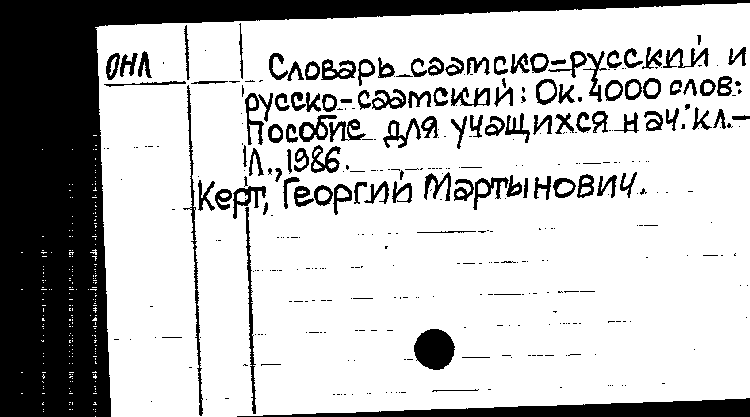 ОНЛ
Словарь саамско-русский и
русско-саамский: Ок. 4000 слов:
Пособие для учащихся нач. кл.–
Л., 1986.
Керт, Георгий Мартынович.